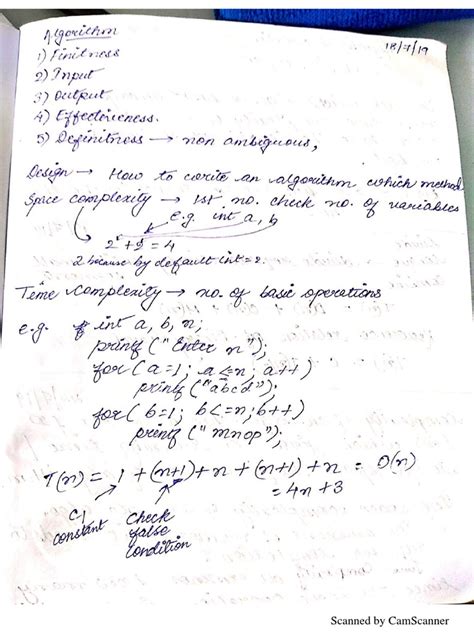 Algorithm
18/7/19
1) Finitness
2) Input
3) Output
4) Effectiveness.
5) Definitness → non ambiguous,
Design → How to write an algorithm which method
Space complexity → 1st no. check no. of variables
e.g. int a, b
2 + 2 = 4
2 because by default int = 2.
Time complexity → no. of basic operations
e.g. int a, b, n;
printf ("Enter n");
for (a=1; a<=n; a++)
printf ("abcd");
for ( b=1; b<=n; b++)
printf ("mnop");
T(n) = 1 + (n+1) + n + (n+1) + n = O(n)
= 4n + 3
C1 constant
check false condition
Scanned by CamScanner